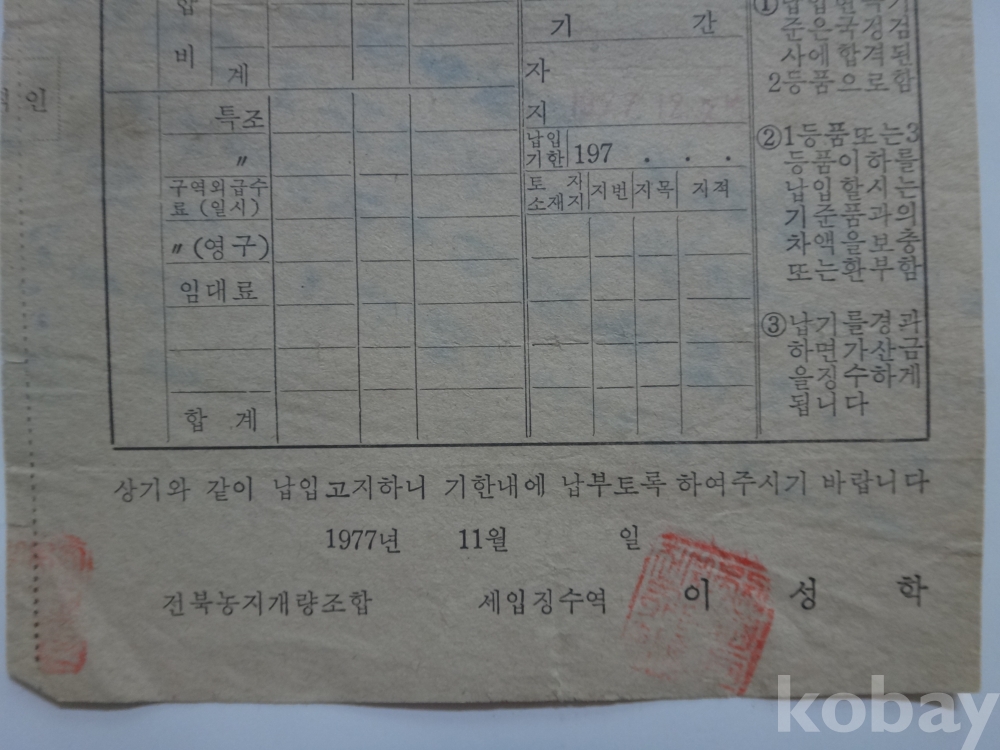 합
비
계
특조
〃
구역외급수
료 (일시)
〃 (영구)
임대료
합 계
기 간
자
지
납입
기한 197 . . .
토 자
소재지 지번 지목 지적
준은국정검
사에합격된
2등품으로함
②1등품또는3
등품이하를
납입할시는
기준품과의
차액을보충
또는환부함
③납기를경과
하면가산금
을징수하게
됩니다
인
상기와 같이 납입고지하니 기한내에 납부토록 하여주시기 바랍니다
1977년 11월 일
전북농지개량조합 세입징수역 이 성 학
kobay